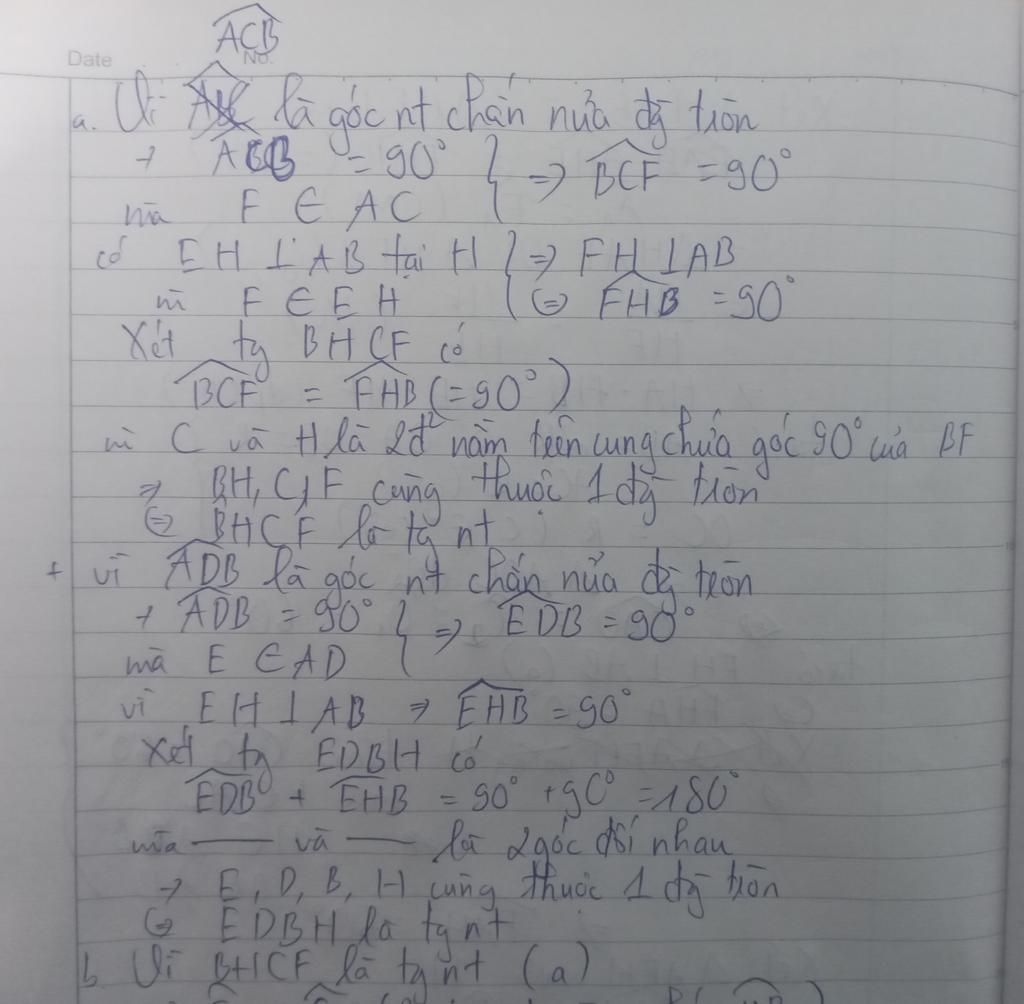 ACB
Date No.
a. Vì là góc nt chắn nửa đg tròn
→ ACB = 90° } => BCF = 90°
mà F ∈ AC
có EH ⊥ AB tại H } => FH ⊥ AB
m F ∈ EH <=> FHB = 90°
Xét tg BHCF có
BCF = FHB (= 90°)
m C và H là 2đ² nằm trên cung chứa góc 90° của BF
=> BH, C, F cùng thuộc 1 đg tròn
<=> BHCF là tg nt
+ vì ADB là góc nt chắn nửa đg tròn
→ ADB = 90° } => EDB = 90°
mà E ∈ AD
vì EH ⊥ AB => EHB = 90°
Xét tg EDBH có
EDB + EHB = 90° + 90° = 180°
mà — và — là 2 góc đối nhau
→ E, D, B, H cùng thuộc 1 đg tròn
<=> EDBH là tg nt
b. Vì BHCF là tg nt (a)